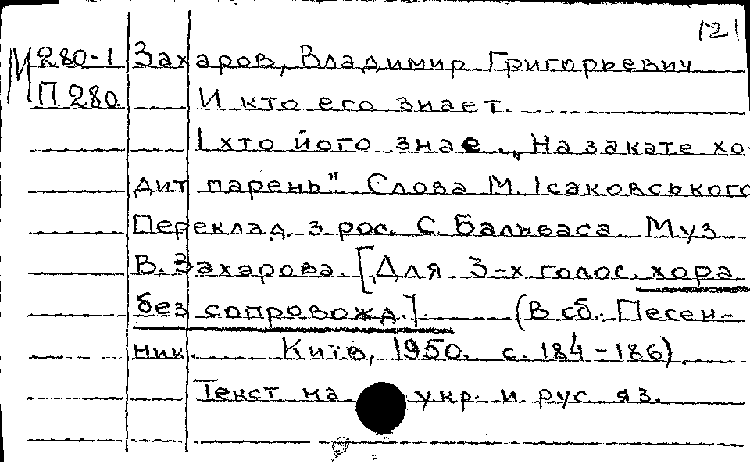 121
М 280-1 Захаров, Владимир Григорьевич
П 280 И кто его знает.
І хто його знае. „На закате хо
дит парень" Слова М. Ісаковського
Переклад з рос. С. Муз
В. Захарова. [Для 3-х голос. хора
без сопровожд.] (В сб. Песен-
ник. Київ, 1950. с. 184-186)
Текст на укр. и рус яз.